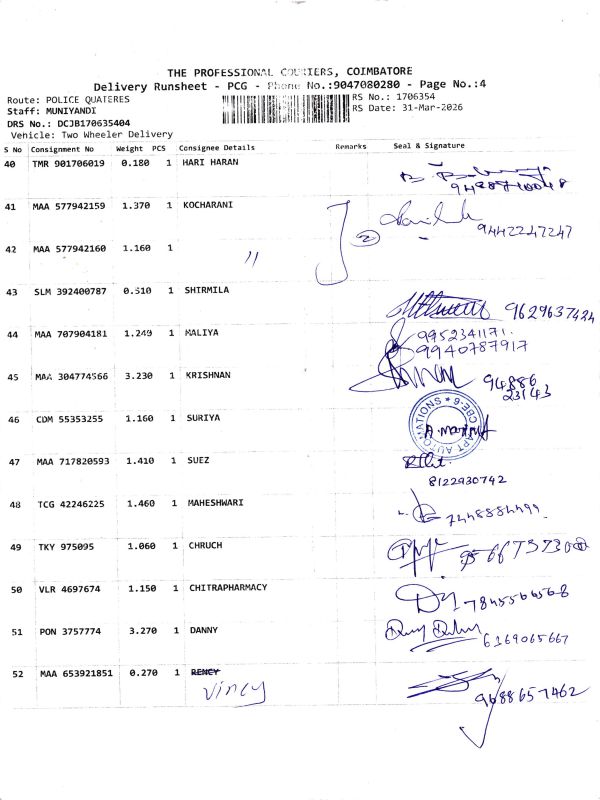 THE PROFESSIONAL COURIERS, COIMBATORE
Delivery Runsheet - PCG - Phone No.:9047080280 - Page No.:4
Route: POLICE QUATERES RS No.: 1706354
Staff: MUNIYANDI RS Date: 31-Mar-2026
DRS No.: DCJB170635404
Vehicle: Two Wheeler Delivery
S No Consignment No Weight PCS Consignee Details Remarks Seal & Signature
40 TMR 901706019 0.180 1 HARI HARAN
41 MAA 577942159 1.370 1 KOCHARANI 2 9442247247
42 MAA 577942160 1.160 1 〃
43 SLM 392400787 0.510 1 SHIRMILA 9629637424
44 MAA 707904181 1.240 1 MALIYA 9952341171.
9940787917
45 MAA 304774566 3.230 1 KRISHNAN 94886
23143
46 CDM 55353255 1.160 1 SURIYA
47 MAA 717820593 1.410 1 SUEZ
8122930742
48 TCG 42246225 1.460 1 MAHESHWARI 7448884499.
49 TKY 975095 1.060 1 CHRUCH
50 VLR 4697674 1.150 1 CHITRAPHARMACY
51 PON 3757774 3.270 1 DANNY 6169065667
52 MAA 653921851 0.270 1 RENCY 9688657462
Vincy